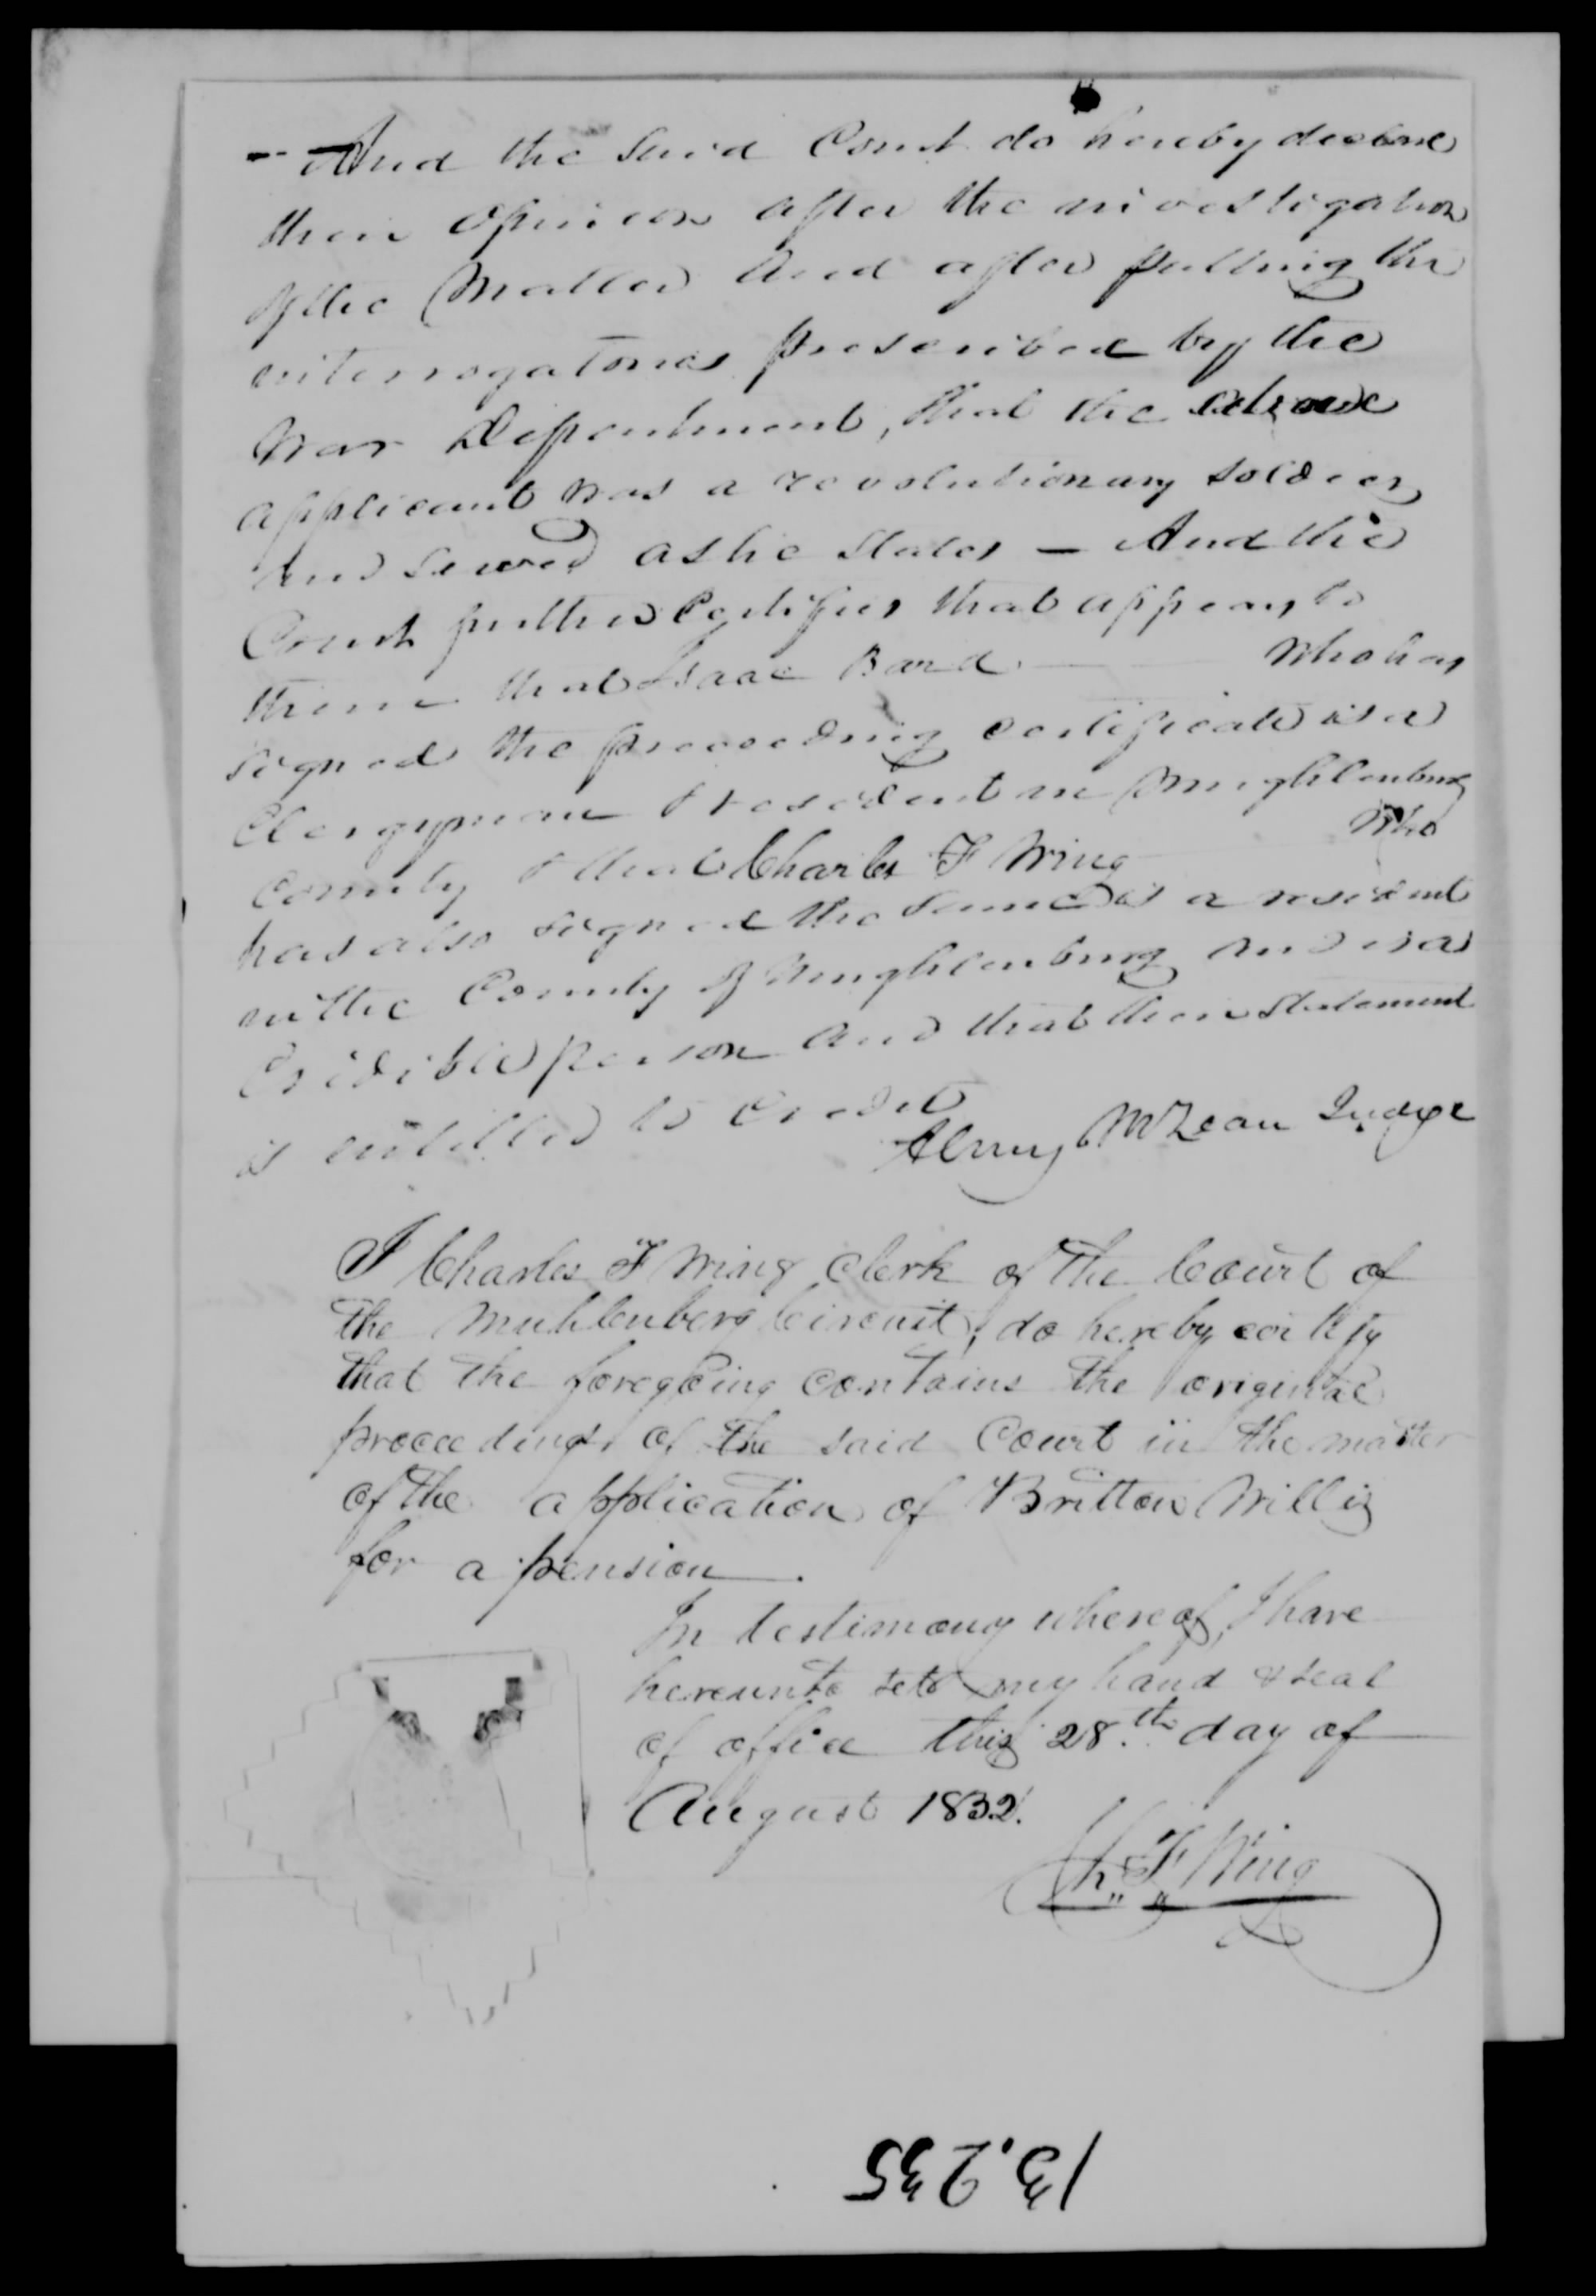 And the said Court do hereby declare
their opinion after the investigation
of the Matter And after putting the
interrogatories prescribed by the
War Department, that the above
applicant was a revolutionary soldier
And served as he states — And the
Court further Certifies that appears to
them that Isaac Bard — who has
signed the preceeding certificate is a
Clergyman & resident in Mughlenburg
County & that Charles F Wing who
has also signed the same is a resident
in the County of Mughlenburg and is a
Credible person and that their statement
is entitled to credit
Alney McLean Judge
I Charles F Wing Clerk of the Court of
the Muhlenberg Circuit, do hereby certify
that the foregoing contains the original
proceedings of the said Court in the matter
of the application of Britton Willis
for a pension.
In testimony whereof, I have
hereunto set my hand & seal
of office this 28.th day of
August 1832.
Ch,, F,, Wing
13.235